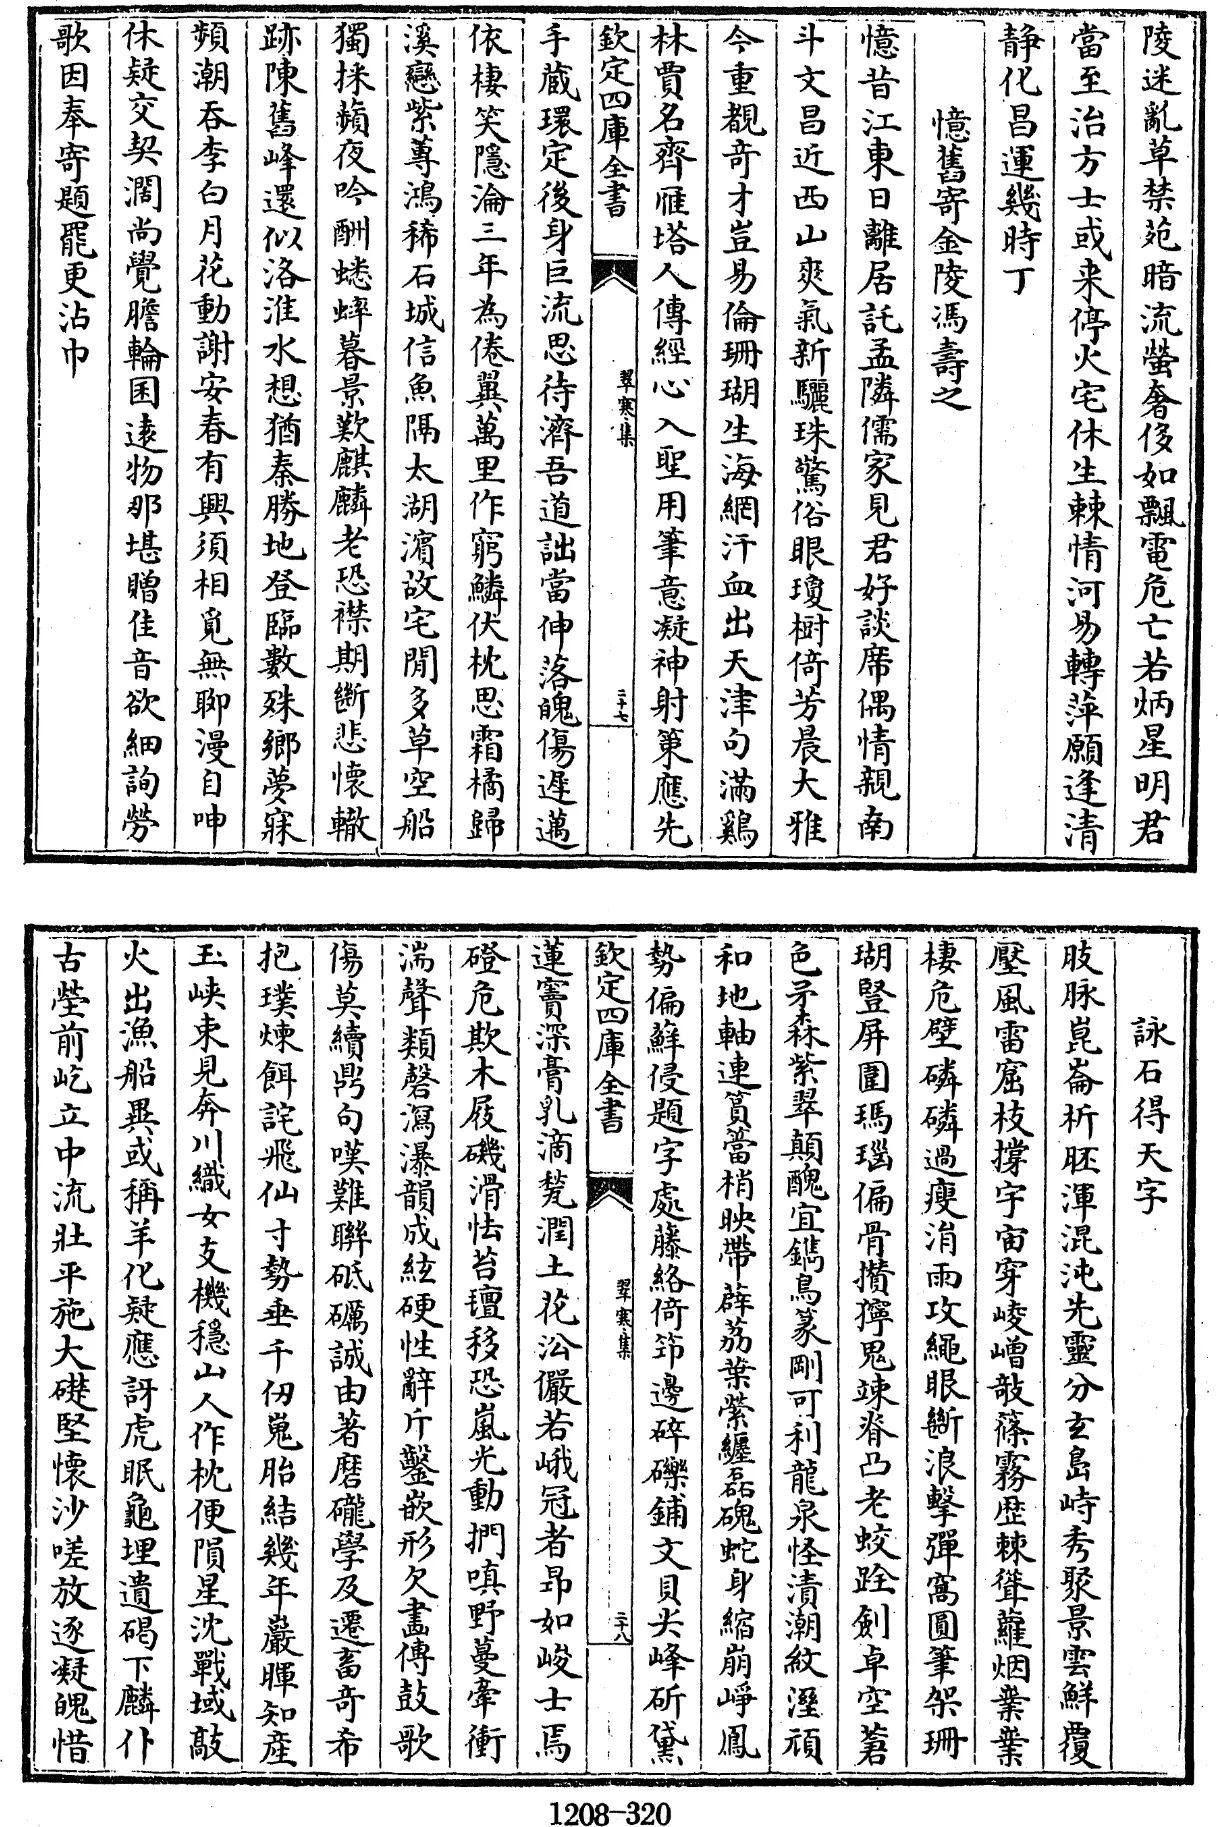 陵迷亂草禁苑暗流螢奢侈如飄電危亡若炳星明君
當至治方士或来停火宅休生棘情河易轉萍願逢清
静化昌運幾時丁
憶舊寄金陵馮壽之
憶昔江東日離居託孟隣儒家見君好談席偶情親南
斗文昌近西山爽氣新驪珠驚俗眼瓊樹倚芳晨大雅
今重覩奇才豈易倫珊瑚生海網汗血出天津句滿鷄
林賈名齊雁塔人傳經心入聖用筆意凝神射策應先
欽定四庫全書
翠寒集
二十七
手蔵環定後身巨流思待濟吾道詘當伸落魄傷遲邁
依棲笑隱淪三年為倦翼萬里作窮鱗伏枕思霜橘歸
溪戀紫蓴鴻稀石城信魚隔太湖濱故宅閒多草空船
獨採蘋夜吟酬蟋蟀暮景歎麒麟老恐襟期斷悲懷轍
跡陳舊峰還似洛淮水想猶秦勝地登臨數殊鄉夢寐
頻潮吞李白月花動謝安春有興須相覓無聊漫自呻
休疑交契濶尚覺膽輪囷遠物那堪贈佳音欲細詢勞
歌因奉寄題罷更沾巾
詠石得天字
肢脉崑崙析胚渾混沌先靈分玄島峙秀聚景雲鮮覆
壓風雷窟枝撐宇宙穿崚嶒敲篠霧歴棘聳蘿烟業業
棲危壁磷磷過瘦涓雨攻繩眼斷浪擊彈窩圓筆架珊
瑚豎屏圍瑪瑙偏骨攢獰鬼竦脊凸老蛟跧劍卓空蒼
色矛森紫翠顛醜宜鐫鳥篆剛可利龍泉怪漬潮紋溼頑
和地軸連篔簹梢映帶薜荔葉縈纏磊磈蛇身縮崩崢鳳
勢偏蘚侵題字處藤絡倚笻邊碎礫鋪文貝尖峰斫黛
欽定四庫全書
翠寒集
二十八
蓮竇深膏乳滴甃潤土花㳂儼若峨冠者昂如峻士焉
磴危欺木屐磯滑怯苔壇移恐嵐光動捫嗔野蔓牽衝
湍聲類磬瀉瀑韻成絃硬性辭斤鑿嵌形欠畫傳鼓歌
傷莫續鼎句嘆難聯砥礪誠由著磨礲學及遷畜奇希
抱璞煉餌詫飛仙寸勢垂千仞嵬胎結幾年巖暉知產
玉峽束見奔川織女支機穩山人作枕便隕星沈戰域敲
火出漁船異或稱羊化疑應訝虎眠龜埋遺碣下麟仆
古塋前屹立中流壯平施大礎堅懷沙嗟放逐凝魄惜
1208-320